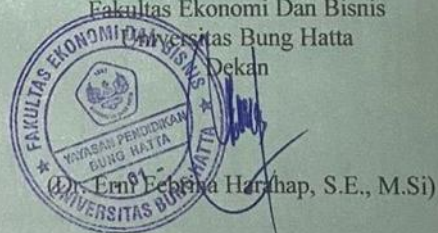 Fakultas Ekonomi Dan Bisnis
Universitas Bung Hatta
Dekan
FAKULTAS EKONOMI DAN BISNIS
YAYASAN PENDIDIKAN
BUNG HATTA
- 01 -
UNIVERSITAS BUNG HATTA
(Dr. Erni Febrina Harahap, S.E., M.Si)